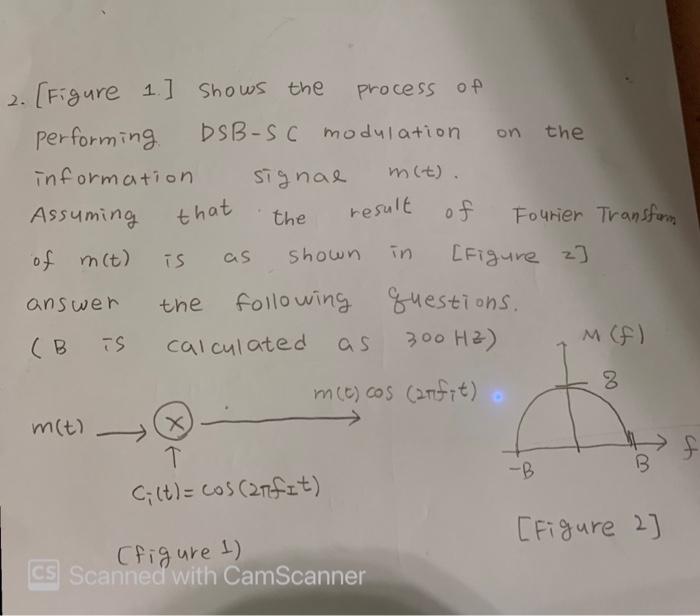 2. [Figure 1.] Shows the process of
performing DSB-SC modulation on the
information signal m(t).
Assuming that the result of Fourier Transform
of m(t) is as shown in [Figure 2]
answer the following questions.
(B is calculated as 300 Hz)
M(f)
8
m(t) cos (2πfit)
m(t)
X
f
-B
B
Ci(t) = cos(2πfIt)
[Figure 2]
(figure 1)
CS Scanned with CamScanner